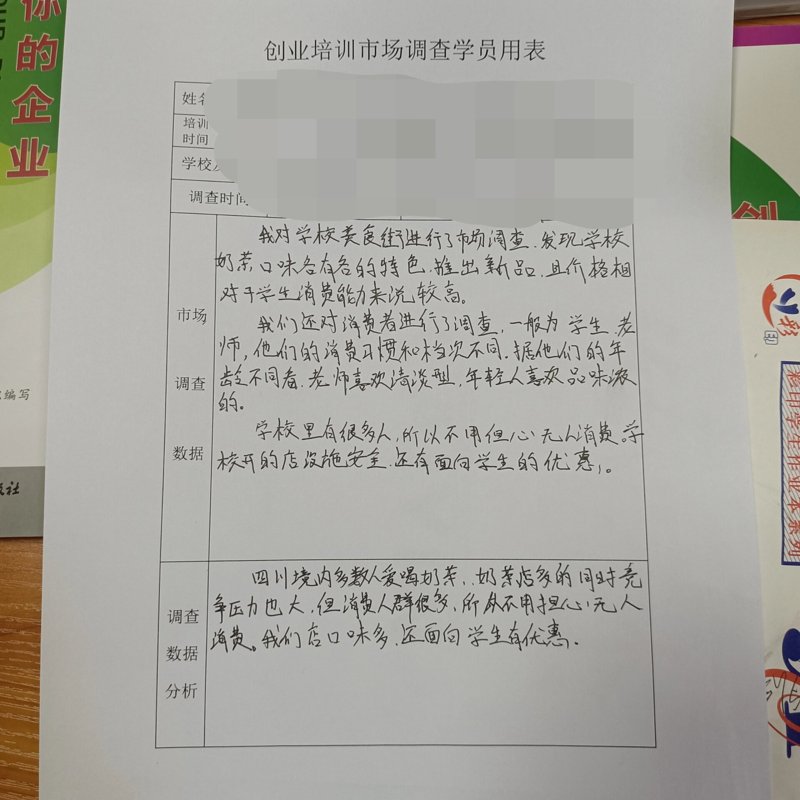 你的企业
编写
版社
创业培训市场调查学员用表
姓名
培训
时间
学校
调查时间
市场
调查
数据
我对学校美食街进行了市场调查,发现学校
奶茶口味各有各的特色,推出新品,且价格相
对于学生消费能力来说较高。
我们还对消费者进行了调查,一般为学生、老
师,他们的消费习惯和档次不同,据他们的年
龄不同看,老师喜欢清淡型,年轻人喜欢品味浓
的。
学校里有很多人,所以不用但心无人消费。学
校开的店设施安全,还有面向学生的优惠,。
调查
数据
分析
四川境内多数人爱喝奶茶,奶茶店多的同时竞
争压力也大,但消费人群很多,所以不用担心无人
消费。我们店口味多,还面向学生有优惠。
创
彩
彩印学生作业本系列